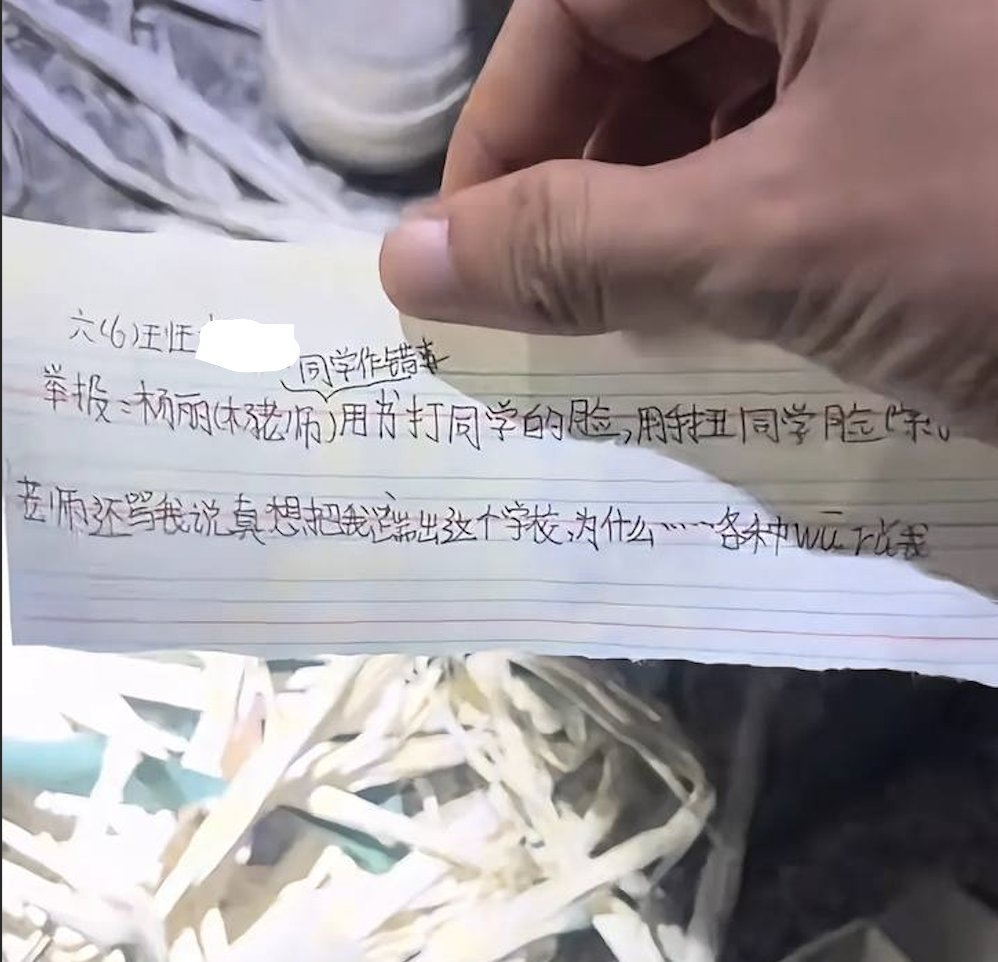 六(6)班任
同学作错事
举报:杨丽(杨老师)用书打同学的脸,用手扭同学脸
老师还骂我说真想把我踹出这个学校,为什么……各种wū
我